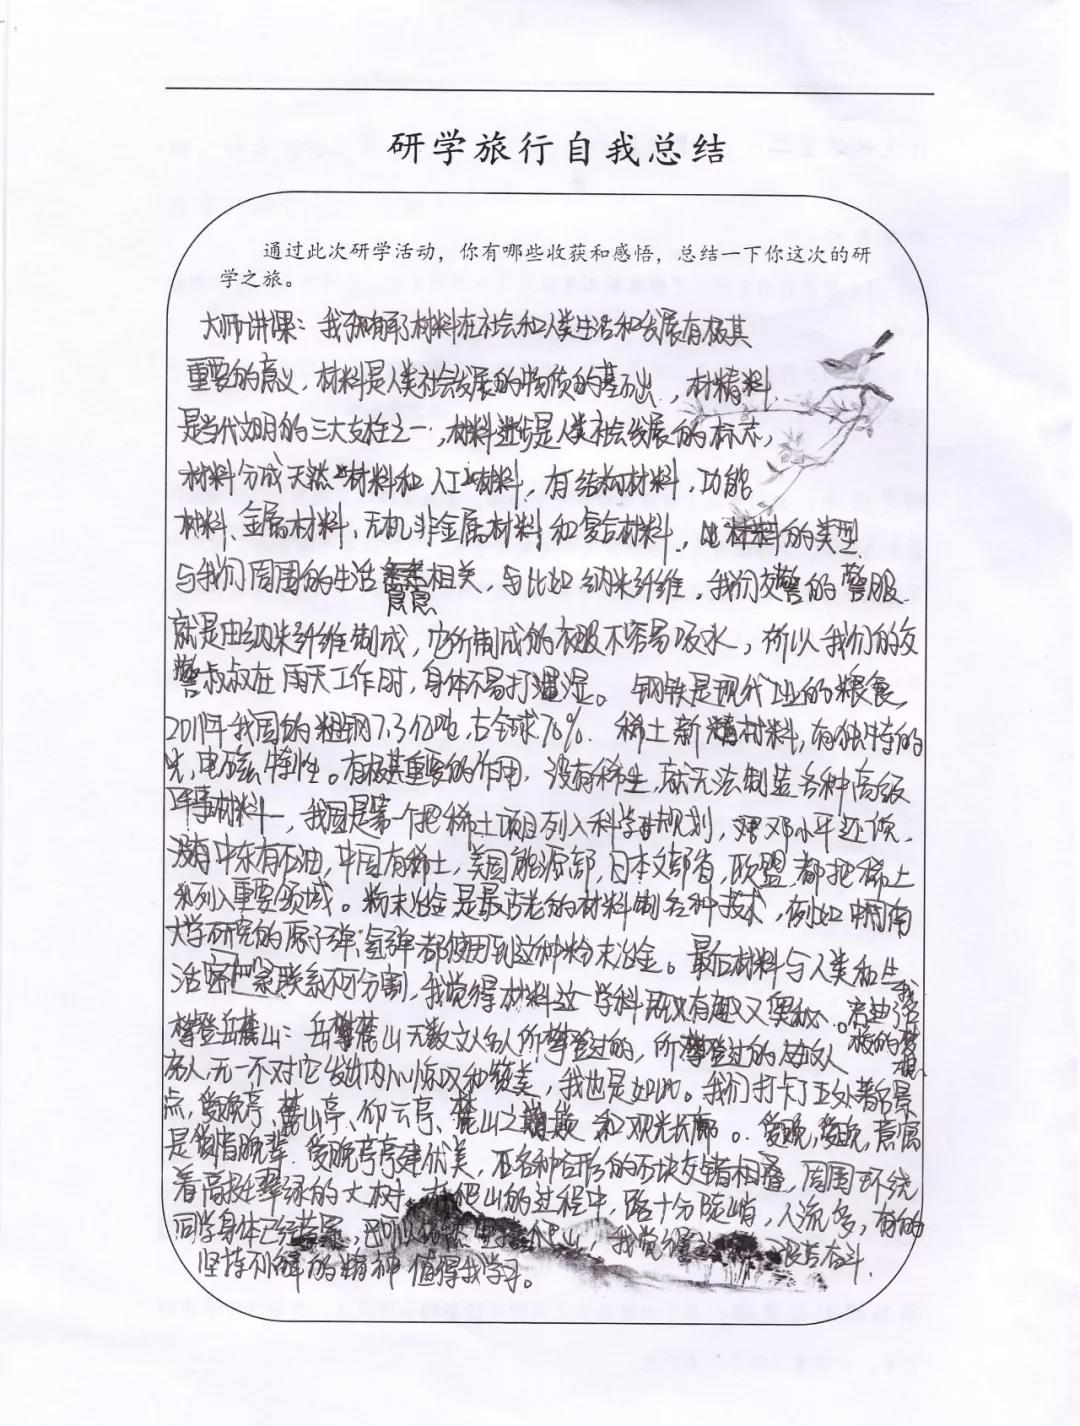 研学旅行自我总结
通过此次研学活动，你有哪些收获和感悟，总结一下你这次的研
学之旅。
大师讲课：我了材料在社会和人类生活和发展有极其
重要的意义，材料是人类社会发展的物质的基础，材料
是当代文明的三大支柱之一，材料进步是人类社会发展的标志，
材料分成天然材料和人工材料，有结构材料，功能
材料、金属材料，无机非金属材料和复合材料，材料的类型
与我们周围的生活息息相关，比如纳米纤维，我们交警的警服
就是由纳米纤维制成，它所制成的衣服不容易吸水，所以我们的交
警叔叔在雨天工作时，身体不易打湿。钢铁是现代工业的粮食，
我国的粗钢7.3亿吨，占全球70%．稀土新材料，有独特的
光，电磁特性。有极其重要的作用，没有稀土，就无法制造各种高级
军事材料，我国是第一个把稀土项目列入科学规划，邓小平还
中东有石油，中国有稀土，美国能源部，日本文部省，欧盟都把稀土
列入重要领域。粉末冶金是最古老的材料制备技术，例如中南
大学研究的原子弹、氢弹都使用到这种粉末冶金。最后材料与人类和生
活密切联系不可分割，我觉得材料这一学科既有趣又奥秘。我
攀登岳麓山：岳麓山无数文人名人所攀登过的，所攀登过的
名人，无一不对它发出内心惊叹和赞美，我也是如此。我们打卡了五处著名景
点，爱晚亭、麓山亭、仰云亭、麓山之巅和观光长廊。爱晚，爱晚，意寓
是爱惜晚辈．爱晚亭亭建优美，各种石块交错相叠，周围环绕
着高挺翠绿的大树．在爬山的过程中，路十分陡峭，人流多，有的
同学身体已经，我觉得艰苦奋斗，
坚持不懈的精神值得我学习。